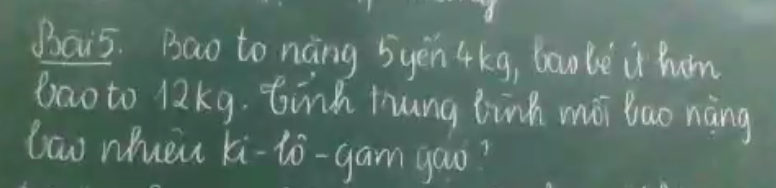 Bài 5. Bao to nặng 5 yến 4kg, bao bé ít hơn
bao to 12kg. Tính trung bình mỗi bao nặng
bao nhiêu ki-lô-gam gạo?